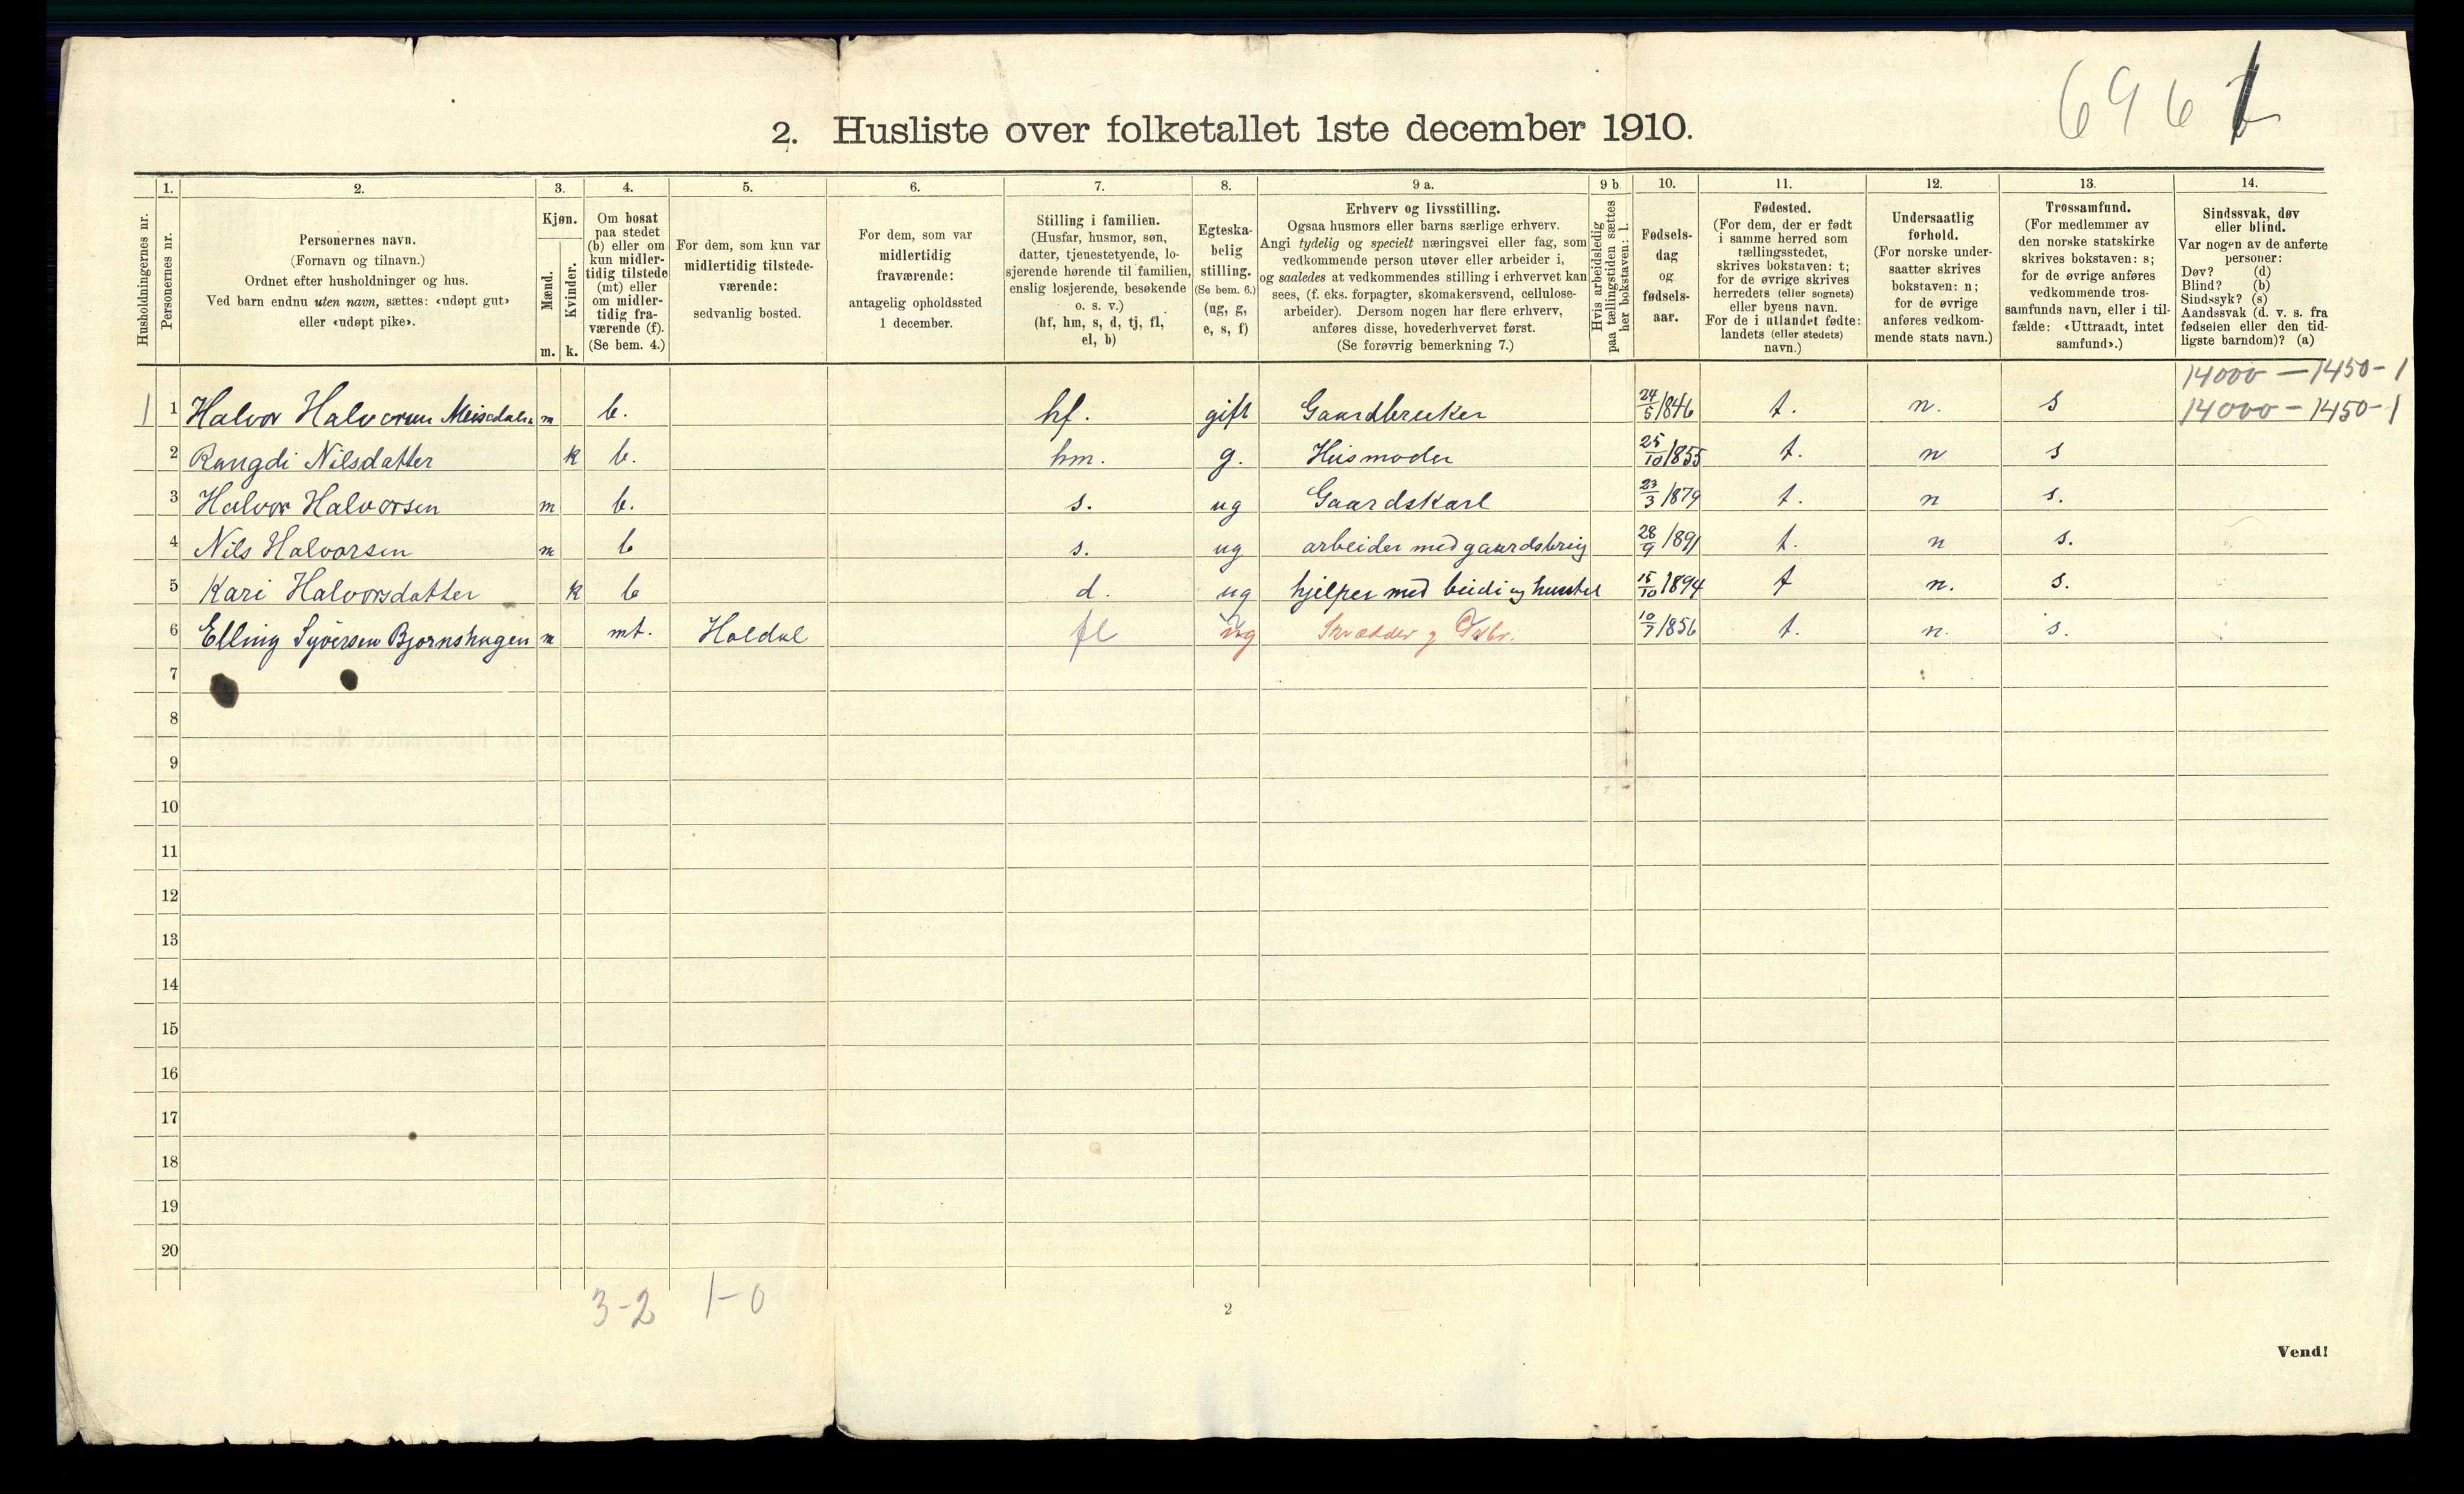 6967
2. Husliste over folketallet 1ste december 1910.
1. 2. 3. 4. 5. 6. 7. 8. 9 a. 9 b. 10. 11. 12. 13. 14.
Husholdningernes nr.
Personernes nr.
Personernes navn.
(Fornavn og tilnavn.)
Ordnet efter husholdninger og hus.
Ved barn endnu uten navn, sættes: «udøpt gut»
eller «udøpt pike».
Kjøn.
Mænd.
Kvinder.
m. k.
Om bosat
paa stedet
(b) eller om
kun midler-
tidig tilstede
(mt) eller
om midler-
tidig fra-
værende (f).
(Se bem. 4.)
For dem, som kun var
midlertidig tilstede-
værende:
sedvanlig bosted.
For dem, som var
midlertidig
fraværende:
antagelig opholdssted
1 december.
Stilling i familien.
(Husfar, husmor, søn,
datter, tjenestetyende, lo-
sjerende hørende til familien,
enslig losjerende, besøkende
o. s. v.)
(hf, hm, s, d, tj, fl,
el, b)
Egteska-
belig
stilling.
(Se bem. 6.)
(ug, g,
e, s, f)
Erhverv og livsstilling.
Ogsaa husmors eller barns særlige erhverv.
Angi tydelig og specielt næringsvei eller fag, som
vedkommende person utøver eller arbeider i,
og saaledes at vedkommendes stilling i erhvervet kan
sees, (f. eks. forpagter, skomakersvend, cellulose-
arbeider). Dersom nogen har flere erhverv,
anføres disse, hovederhvervet først.
(Se forøvrig bemerkning 7.)
Hvis arbeidsledig
paa tællingstiden sættes
her bokstaven: l.
Fødsels-
dag
og
fødsels-
aar.
Fødested.
(For dem, der er født
i samme herred som
tællingsstedet,
skrives bokstaven: t;
for de øvrige skrives
herredets (eller sognets)
eller byens navn.
For de i utlandet fødte:
landets (eller stedets)
navn.)
Undersaatlig
forhold.
(For norske under-
saatter skrives
bokstaven: n;
for de øvrige
anføres vedkom-
mende stats navn.)
Trossamfund.
(For medlemmer av
den norske statskirke
skrives bokstaven: s;
for de øvrige anføres
vedkommende tros-
samfunds navn, eller i til-
fælde: «Uttraadt, intet
samfund».)
Sindssvak, døv
eller blind.
Var nogen av de anførte
personer:
Døv? (d)
Blind? (b)
Sindssyk? (s)
Aandssvak (d. v. s. fra
fødselen eller den tid-
ligste barndom)? (a)
14000 – 1450 – 1
1 1 Halvor Halvorsen m b. hf. gift Gaardbruker 24/5 1846 t. n. s 14000 – 1450 – 1
2 Rangdi Nilsdatter k b. hm. g. Husmoder 25/10 1855 t. n s
3 Halvor Halvorsen m b. s. ug Gaardskarl 23/3 1879 t. n s.
4 Nils Halvorsen m b s. ug arbeider med gaardsbrug 28/9 1891 t. n s.
5 Kari Halvorsdatter k b d. ug hjelper med 15/10 1894 t n. s.
6 Elling Syversen Bjørnshagen m mt. Haldal fl ug Skrædder g Gbr. 10/7 1856 t. n. s.
7
8
9
10
11
12
13
14
15
16
17
18
19
20
3-2 1-0
2
Vend!